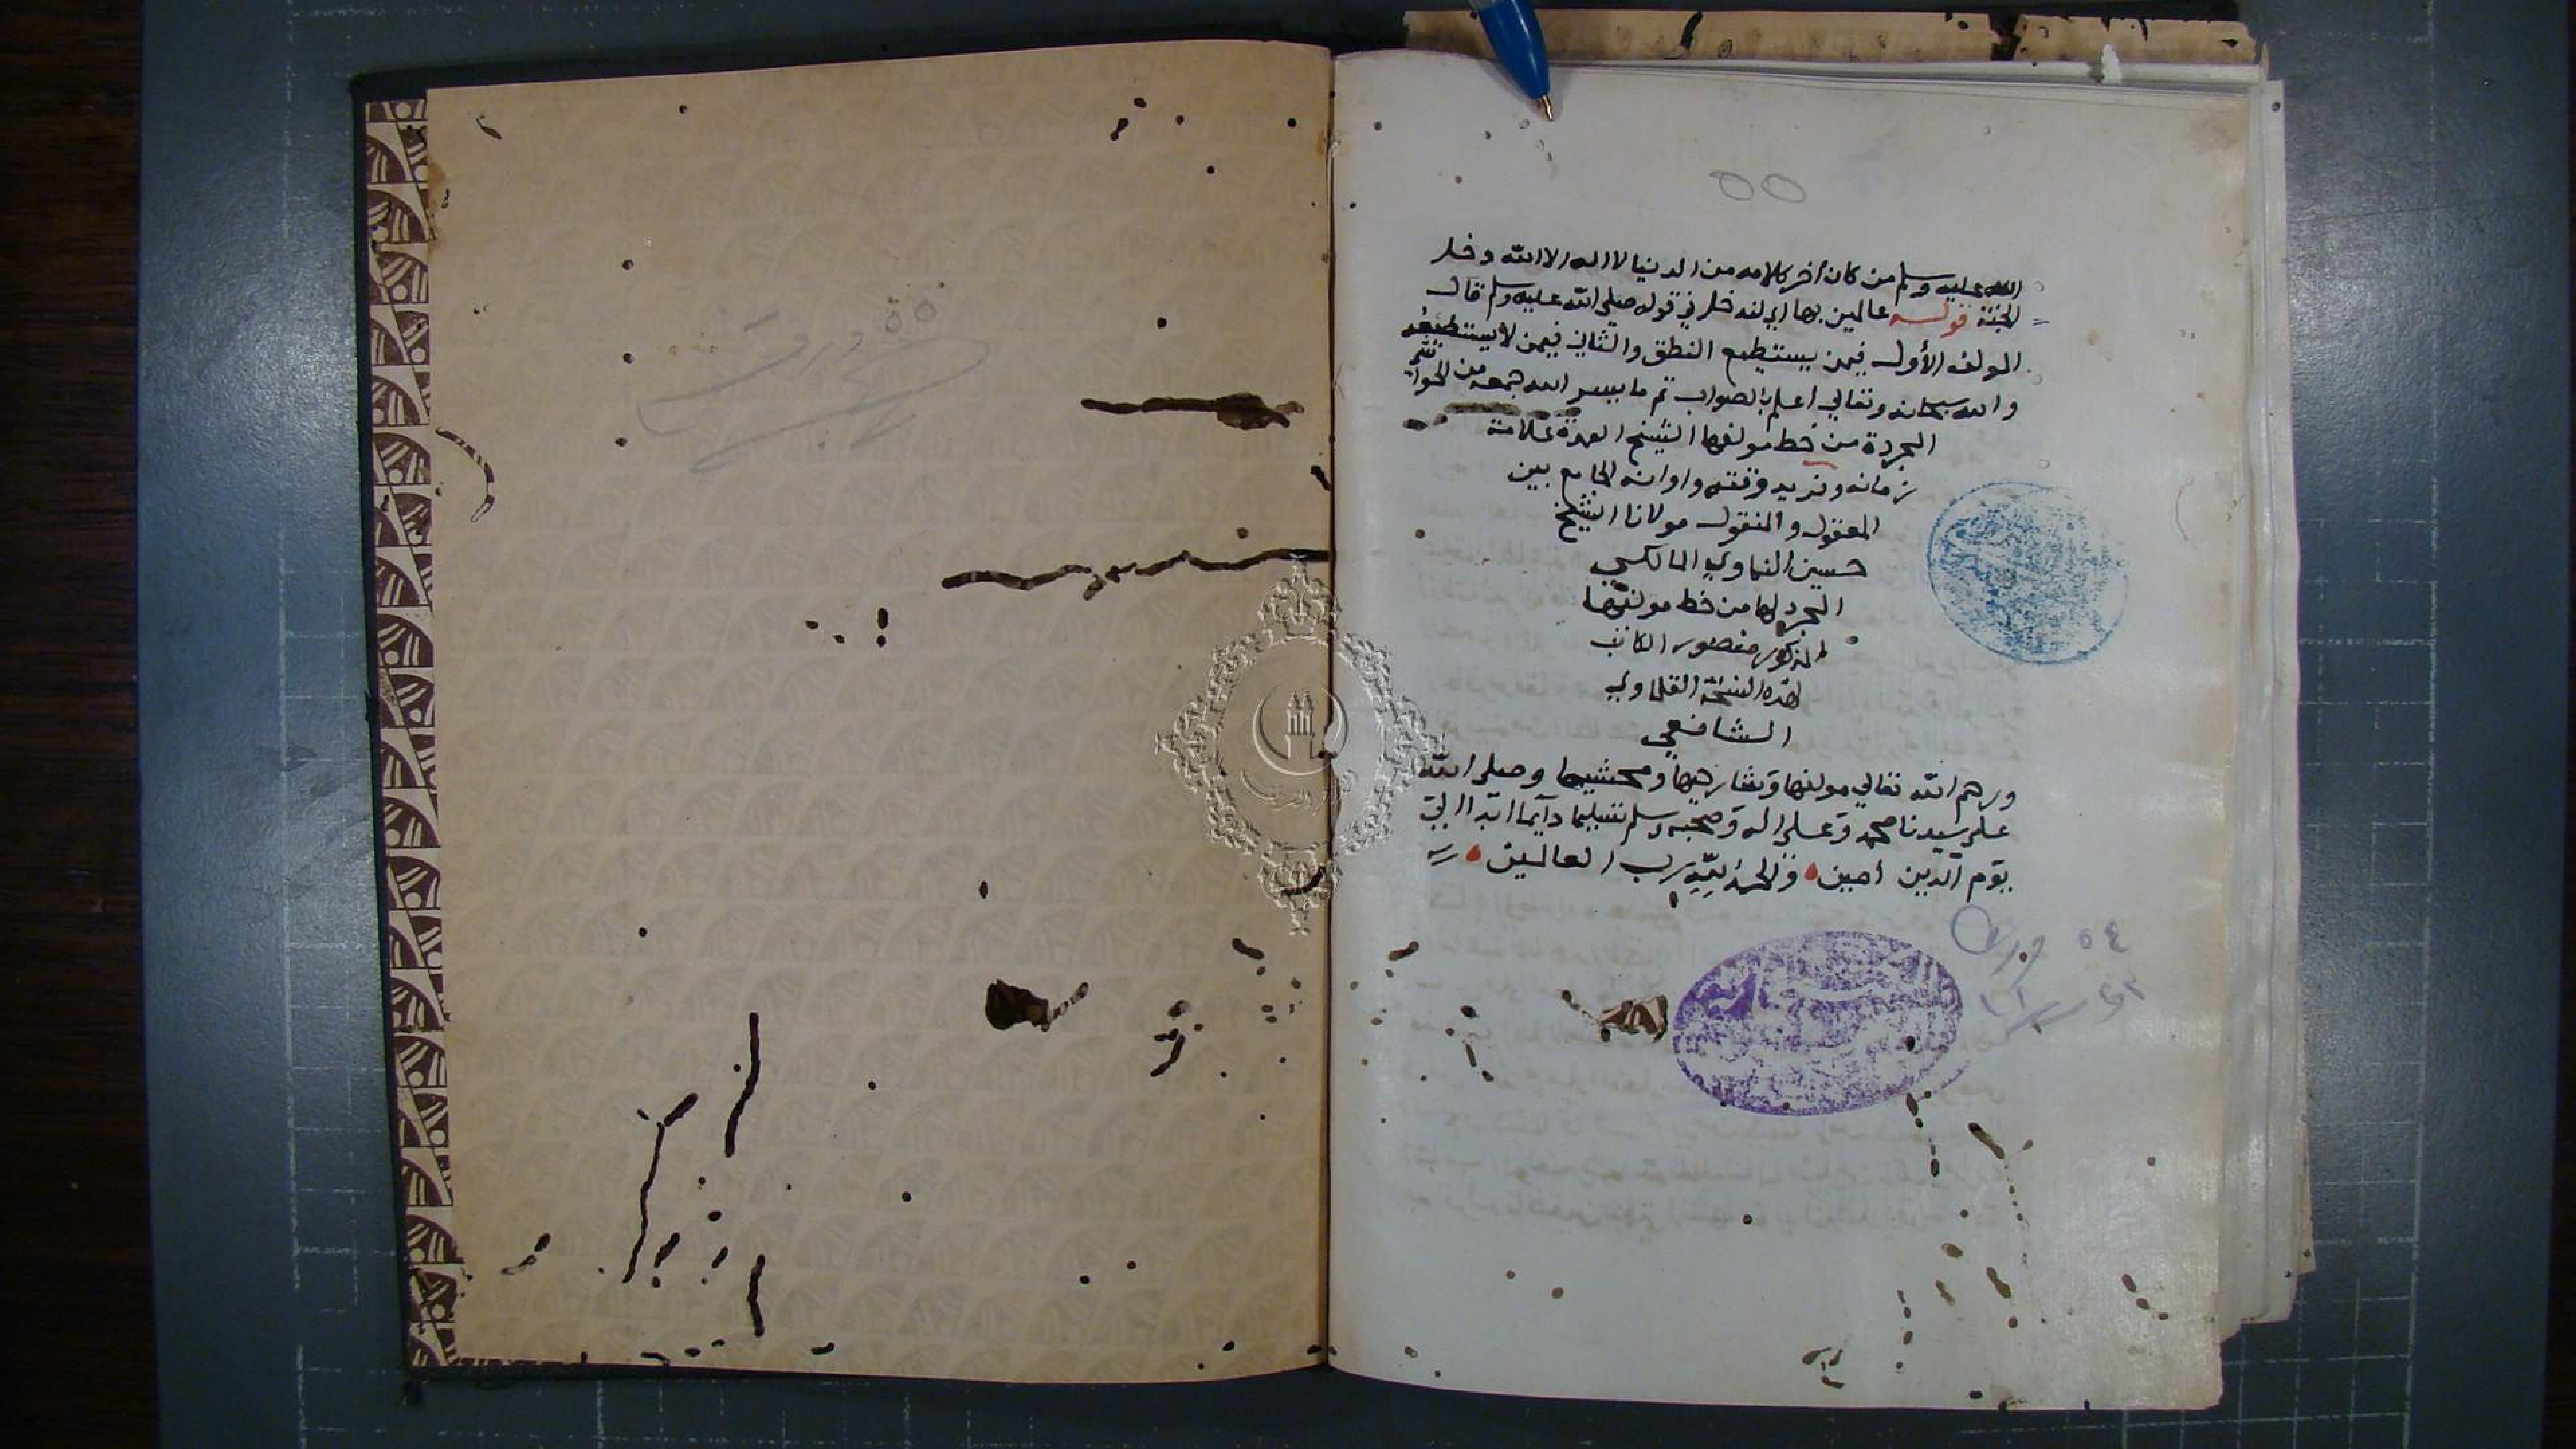 الله عليه وسلم من كان أخر كلامه من الدنيا لا اله الا الله دخل
الجنة قوله عالمين بها اي لندخل في قوله صلى الله عليه وسلم قال
المولف الأول فيمن يستطيع النطق والثاني فيمن لا يستطيعه
والله سبحانه وتعالي أعلم بالصواب تم ما يسر الله جمعه من الحواشي
المجردة من خط مولفها الشيخ العمدة علامة
زمانه وفريد وقته واوانه الجامع بين
المعقول والمنقول مولانا الشيخ
حسين النماوي المالكي
المجرد لها من خط مولفها
المذكور منصور الكاتب
لهذه النسخة القلماوي
الشافعي
ورحم الله تعالي مولفها وشارحها ومحشيها وصلى الله
على سيدنا محمد وعلى اله وصحبه وسلم تسليما دآيما ابدا الي
يوم الدين امين والحمد لله رب العالمين
٥٥
٥٥ ورقة
٥٤ ورقة